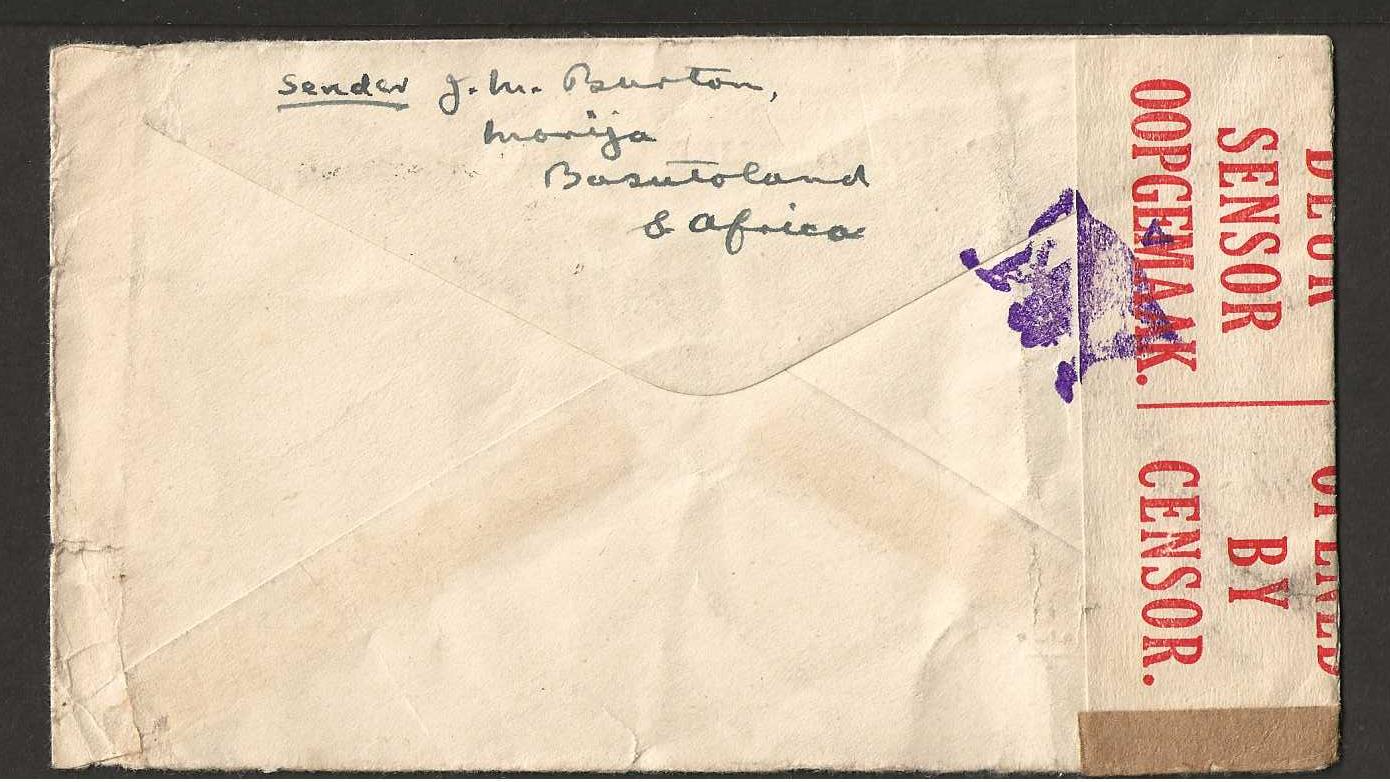 Sender J. M. Burton,
Morija
Basutoland
S. Africa
DEUR
SENSOR
OOPGEMAAK.
OPENED
BY
CENSOR.